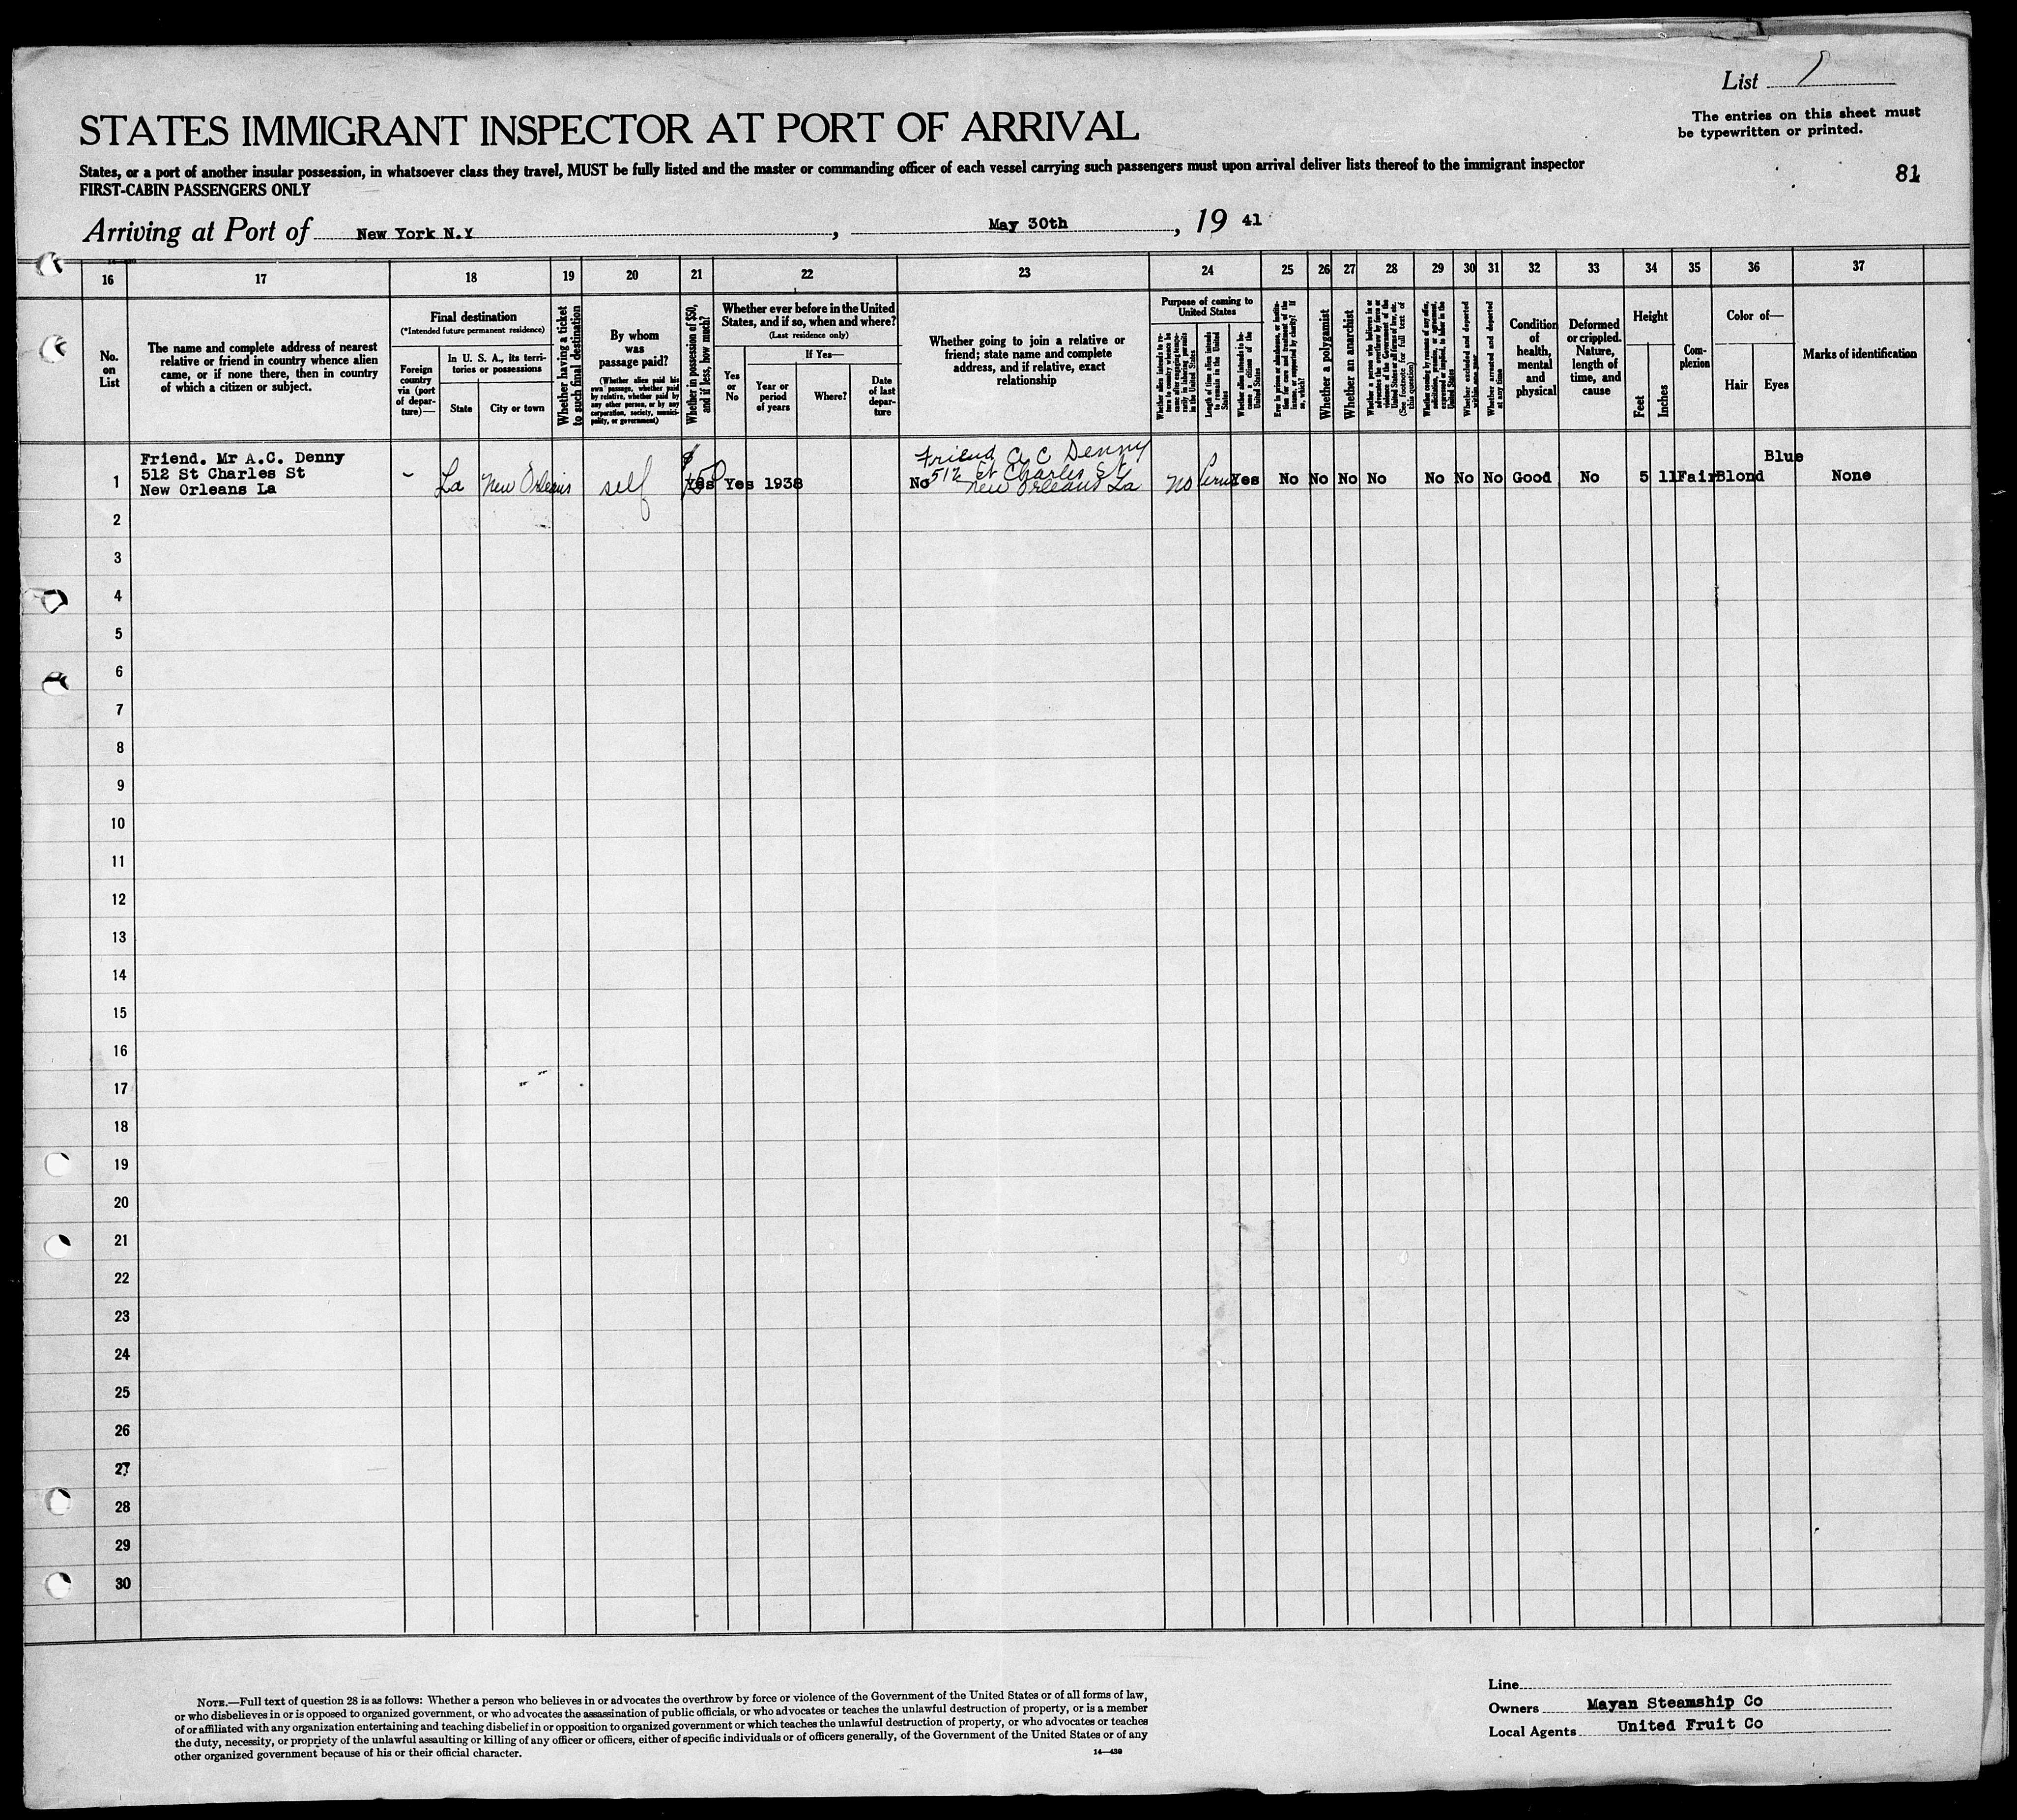 List 1
The entries on this sheet must
be typewritten or printed.
STATES IMMIGRANT INSPECTOR AT PORT OF ARRIVAL
States, or a port of another insular possession, in whatsoever class they travel, MUST be fully listed and the master or commanding officer of each vessel carrying such passengers must upon arrival deliver lists thereof to the immigrant inspector
FIRST-CABIN PASSENGERS ONLY
81
Arriving at Port of New York N.Y, May 30th, 19 41
16 17 18 19 20 21 22 23 24 25 26 27 28 29 30 31 32 33 34 35 36 37
No.
on
List
The name and complete address of nearest
relative or friend in country whence alien
came, or if none there, then in country
of which a citizen or subject.
Final destination
(*Intended future permanent residence)
Foreign
country
via (port
of depar-
ture)—
In U. S. A., its terri-
tories or possessions
State
City or town
Whether having a ticket
to such final destination
By whom
was
passage paid?
(Whether alien paid his
own passage, whether paid
by relative, whether paid by
any other person, or by any
corporation, society, munici-
pality, or government)
Whether in possession of $50,
and if less, how much?
Whether ever before in the United
States, and if so, when and where?
(Last residence only)
Yes
or
No
If Yes—
Year or
period
of years
Where?
Date
of last
depar-
ture
Whether going to join a relative or
friend; state name and complete
address, and if relative, exact
relationship
Purpose of coming to
United States
Whether alien intends to re-
turn to country whence he
came after engaging tempo-
rarily in laboring pursuits
in the United States
Length of time alien intends
to remain in the United
States
Whether alien intends to be-
come a citizen of the
United States
Ever in prison or almshouse, or institu-
tion for care and treatment of the
insane, or supported by charity? If
so, which?
Whether a polygamist
Whether an anarchist
Whether a person who believes in or
advocates the overthrow by force or
violence of the Government of the
United States or all forms of law, etc.
(See footnote for full text of
this question)
Whether coming by reason of any offer,
solicitation, promise, or agreement,
expressed or implied, to labor in the
United States
Whether excluded and deported
within one year
Whether arrested and deported
at any time
Condition
of
health,
mental
and
physical
Deformed
or crippled.
Nature,
length of
time, and
cause
Height
Feet
Inches
Com-
plexion
Color of—
Hair
Eyes
Marks of identification
Friend. Mr A.C. Denny
512 St Charles St
New Orleans La
1 - La New Orleans self $ Yes Yes 1938
Friend A C Denny
512 St Charles St
New Orleans La
No No Yes No No No No No No No Good No 5 11 Fair Blond Blue None
2
3
4
5
6
7
8
9
10
11
12
13
14
15
16
17
18
19
20
21
22
23
24
25
26
27
28
29
30
NOTE.—Full text of question 28 is as follows: Whether a person who believes in or advocates the overthrow by force or violence of the Government of the United States or of all forms of law,
or who disbelieves in or is opposed to organized government, or who advocates the assassination of public officials, or who advocates or teaches the unlawful destruction of property, or is a member
of or affiliated with any organization entertaining and teaching disbelief in or opposition to organized government or which teaches the unlawful destruction of property, or who advocates or teaches
the duty, necessity, or propriety of the unlawful assaulting or killing of any officer or officers, either of specific individuals or of officers generally, of the Government of the United States or of any
other organized government because of his or their official character.
14—430
Line
Owners Mayan Steamship Co
Local Agents United Fruit Co